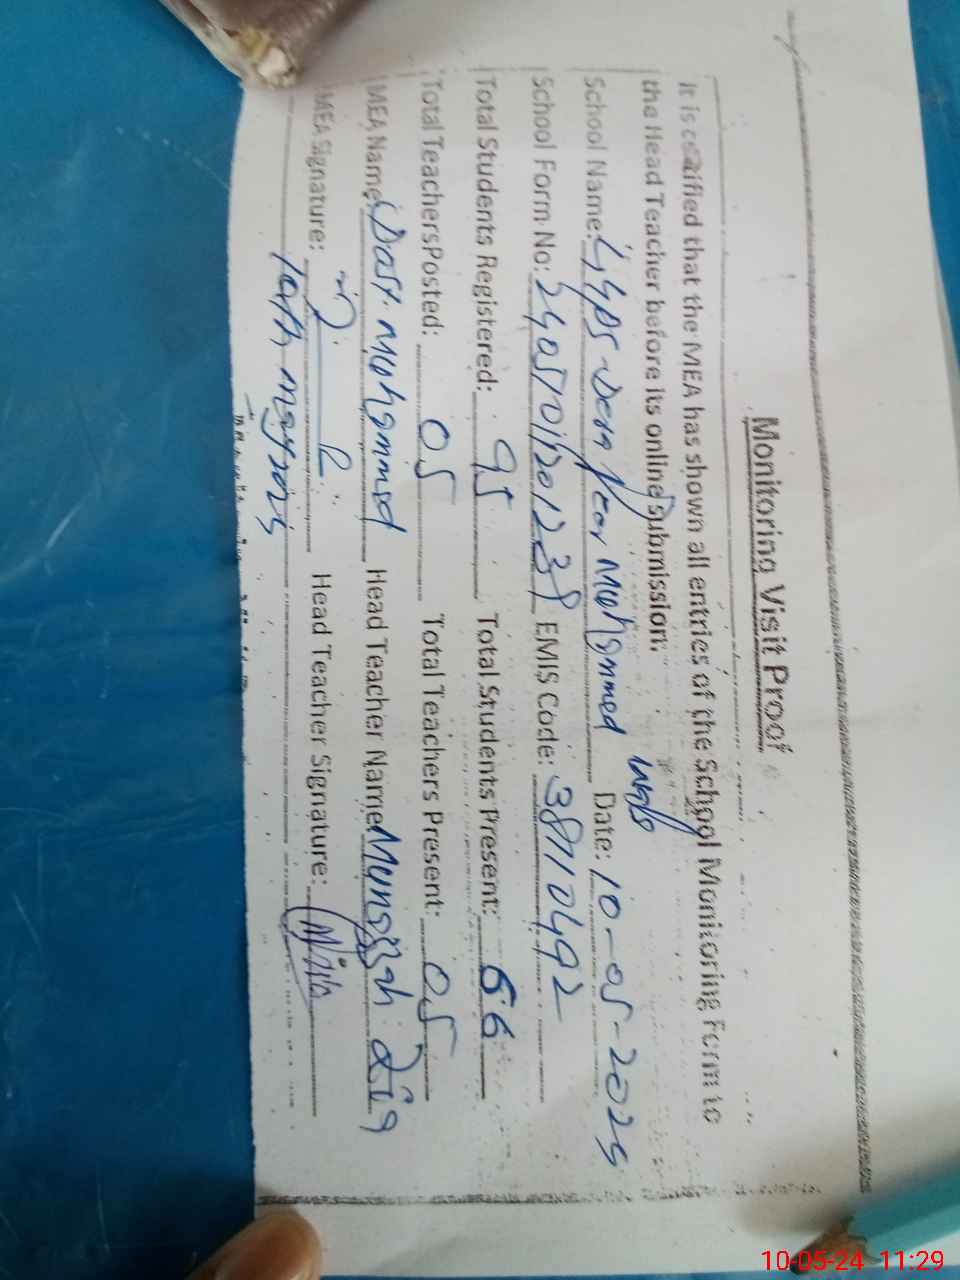 Monitoring Visit Proof
It is certified that the MEA has shown all entries of the School Monitoring Form to
the Head Teacher before its online submission.
School Name: Muhammed Date: 10-05-2025
School Form No: EMIS Code: 38110492
Total Students Registered: 95 Total Students Present: 66
Total TeachersPosted: 05 Total Teachers Present: 05
MEA Name: Dost Muhammad Head Teacher Name
MEA Signature: Head Teacher Signature:
10th May 2025
10-05-24 11:29